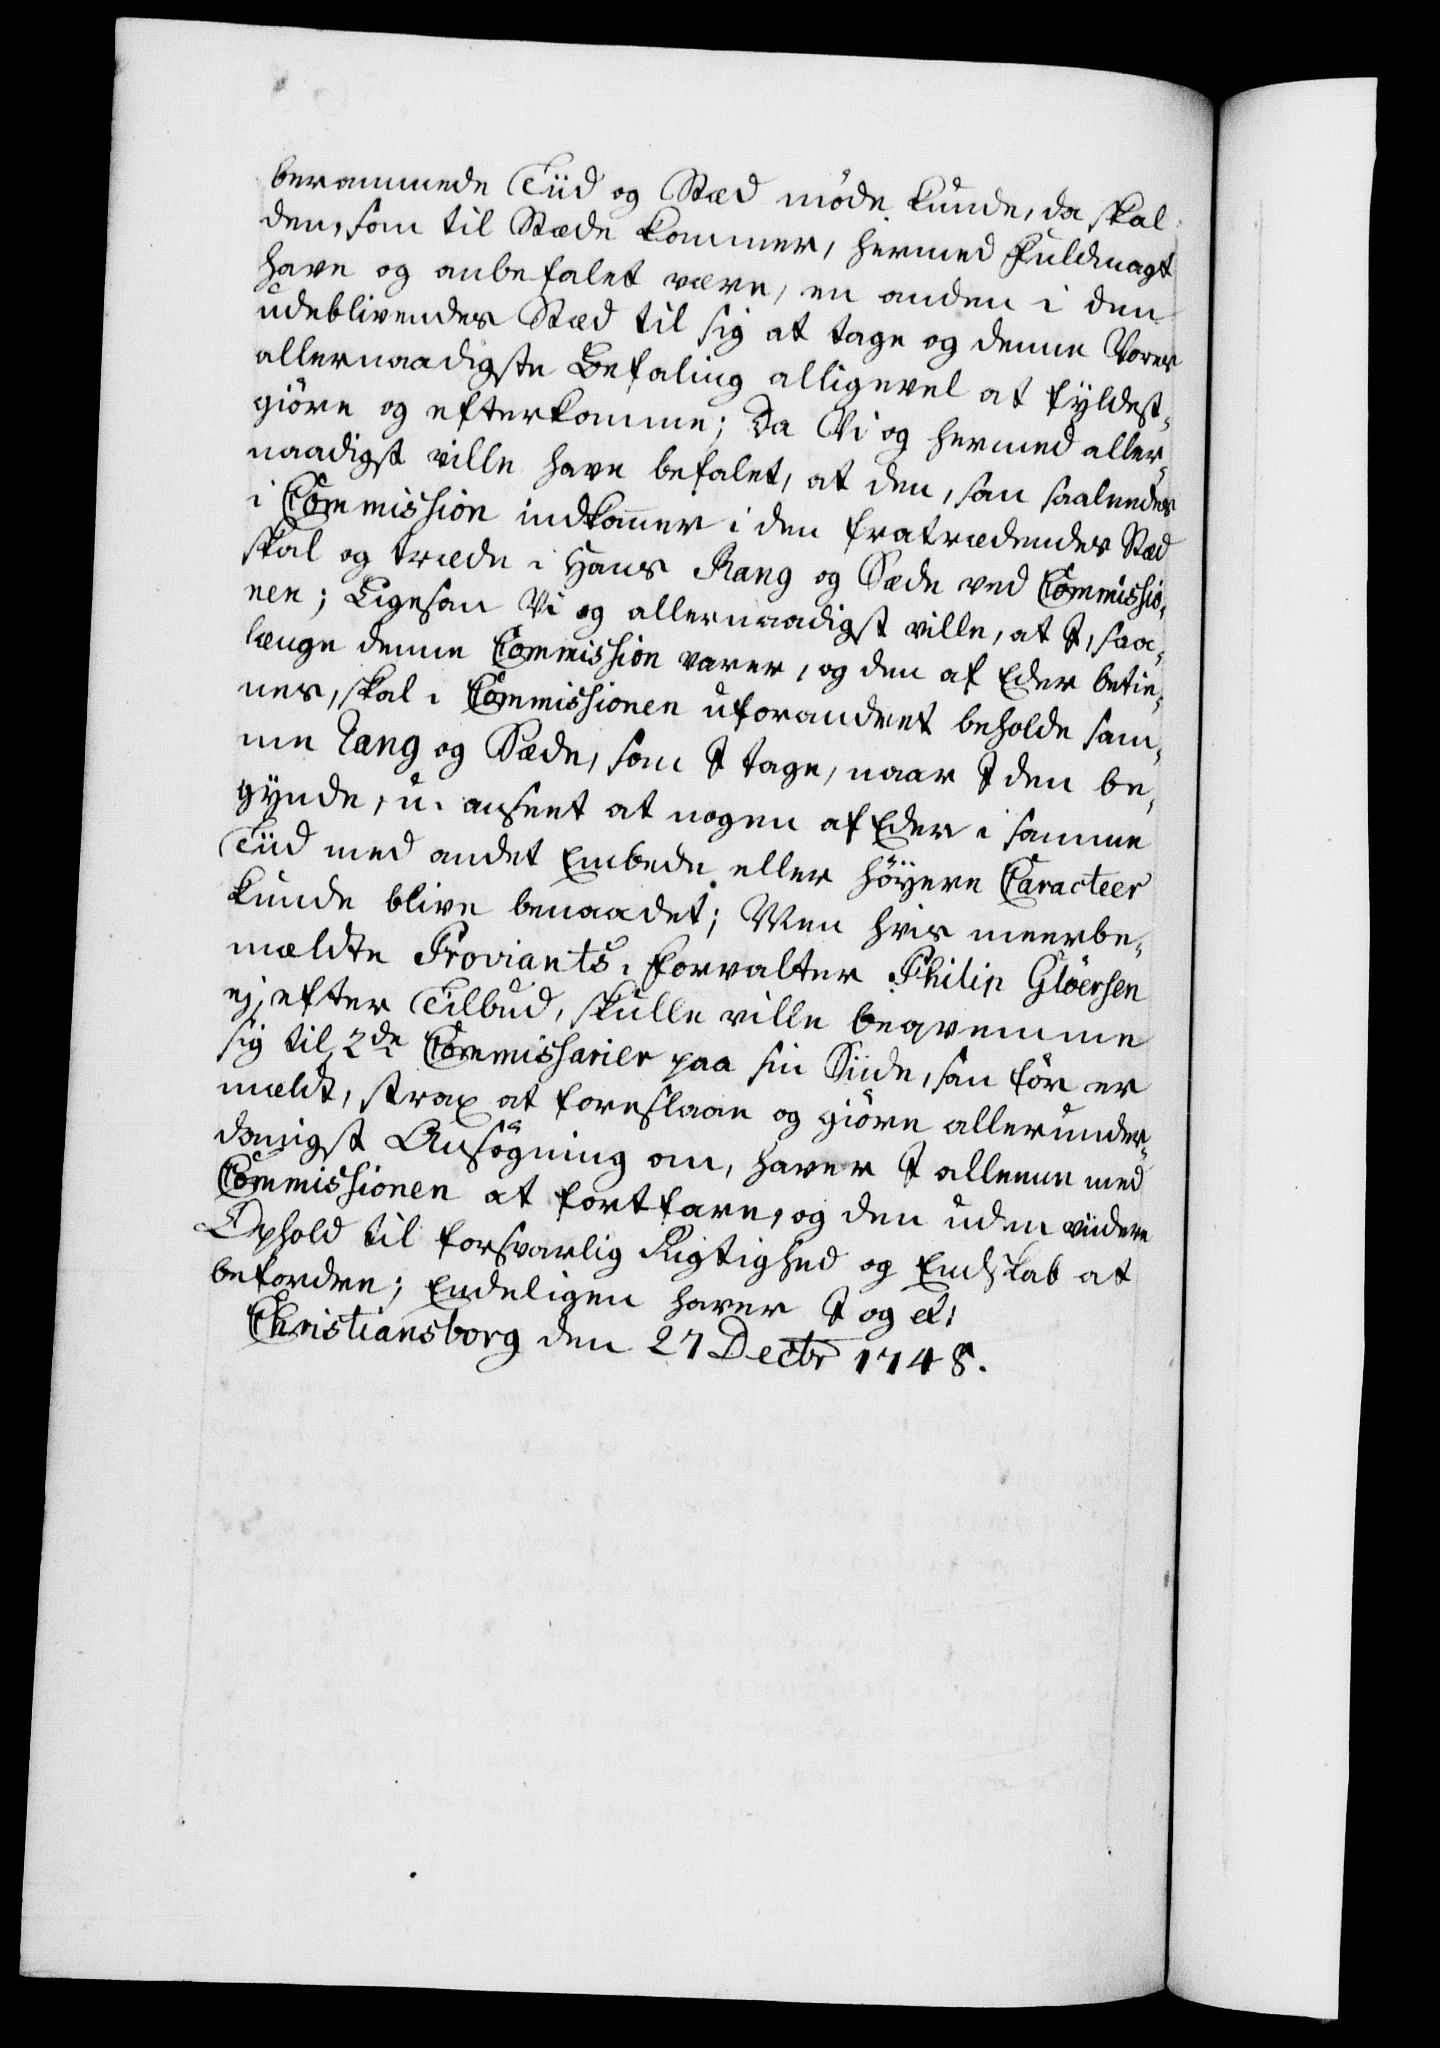 berammede Tiid og Stæd møde kunde, da skal
den, som til Stæde kommer, hermed Fuldmagt
have og anbefalet være, en anden i den
udeblivendes Stæd til sig at tage og denne Vores
allernaadigste Befaling alligevel at fyldest-
giöre og efterkomme; Da Vi og hermed aller-
naadigst ville have befalet, at den, som saaleedes
i Commission indkommer i den fratrædendes Stæd
skal og træde i Hans Rang og Sæde ved Commissio-
nen; Ligesom Vi og allernaadigst ville, at I, saa-
længe denne Commission varer, og den af Eder betie-
nes, skal i Commissionen uforandret beholde sam-
me Rang og Sæde, som I tage, naar I den be-
gynde, u-anseet at nogen af Eder i samme
Tiid med andet Embede eller höyere Caracteer
kunde blive benaadet; Men hvis meerbe-
mældte Proviants-Forvalter Philip Glöersen
ej, efter Tilbud, skulle ville beqvemme
sig til 2de Commissarier paa sin Siide, som för er
meldt, strax at foreslaae og giöre allerunder-
danigst Ansögning om, haver I alleene med
Commissionen at fortfare, og den uden viidere
Ophold til forsvarlig Rigtighed og Endskab at
befordre; Endeligen haver I og etc:
Christiansborg den 27 Decbr 1748.